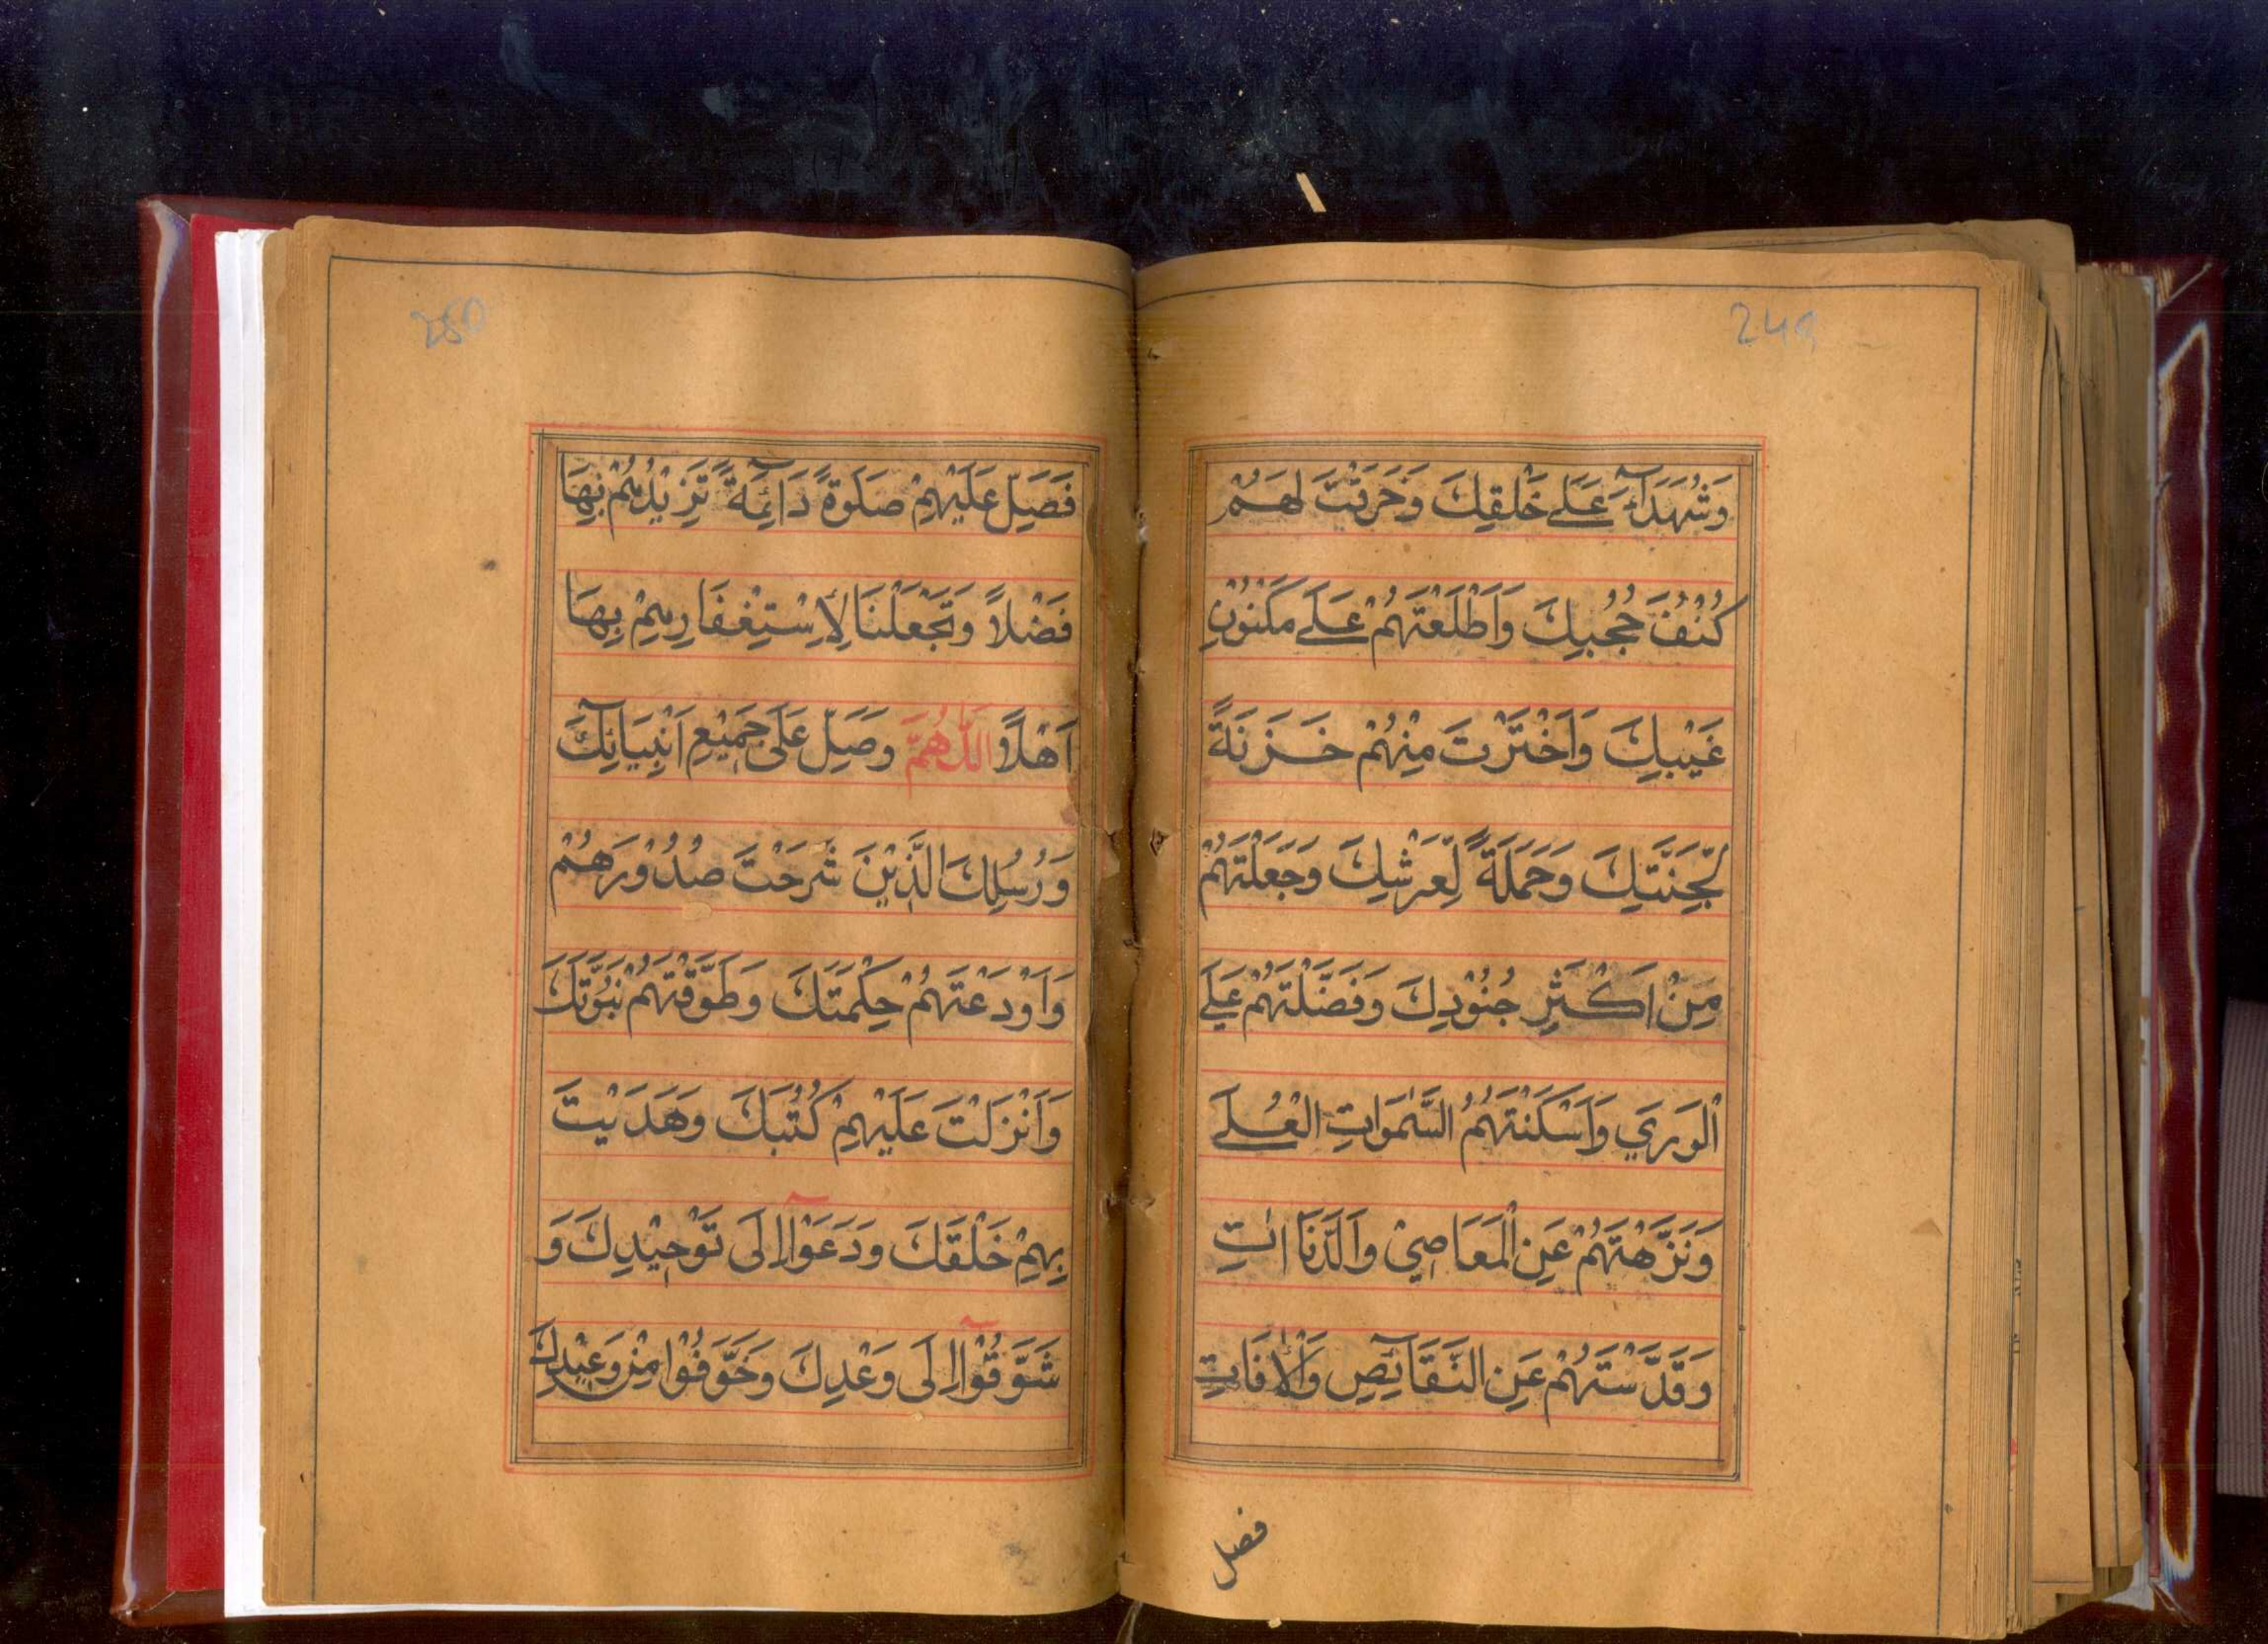 249
وَشُهَدَآءَ عَلٰے خَلْقِكَ وَخَرَقْتَ لَهُمْ
كُنُفَ حُجُبِكَ وَاَطْلَعْتَهُمْ عَلٰے مَكْنُوْنِ
غَيْبِكَ وَاَخْتَرْتَ مِنْهُمْ خَزَنَةً
لِّجَنَّتِكَ وَحَمَلَةً لِّعَرْشِكَ وَجَعَلْتَهُمْ
مِنْ اَكْثَرِ جُنُوْدِكَ وَفَضَّلْتَهُمْ عَلَے
الْوَرَي وَاَسْكَنْتَهُمُ السَّمٰوَاتِ الْعُلَے
وَنَزَّهْتَهُمْ عَنِ الْمَعَاصِيْ وَالدَّنَا اٰتِ
وَقَدَّسْتَهُمْ عَنِ النَّقَآئِصِ وَالْاٰفَاتِ
فصل
250
فَصَلِّ عَلَيْهِمْ صَلٰوةً دَآئِمَةً تَزِيْدُهُمْ بِهَا
فَضْلاً وَتَجْعَلْنَا لِاِسْتِغْفَارِهِمْ بِهَا
اَهْلاً اَللّٰهُمَّ وَصَلِّ عَلَى جَمِيْعِ اَنْبِيَآئِكَ
وَرُسُلِكَ الَّذِيْنَ شَرَحْتَ صُدُوْرَهُمْ
وَاَوْدَعْتَهُمْ حِكْمَتَكَ وَطَوَّقْتَهُمْ نُبُوَّتَكَ
وَاَنْزَلْتَ عَلَيْهِمْ كُتُبَكَ وَهَدَيْتَ
بِهِمْ خَلْقَكَ وَدَعَوْآ اِلَى تَوْحِيْدِكَ وَ
شَوَّقُوْآ اِلَى وَعْدِكَ وَخَوَّفُوْا مِنْ وَعِيْدِكَ